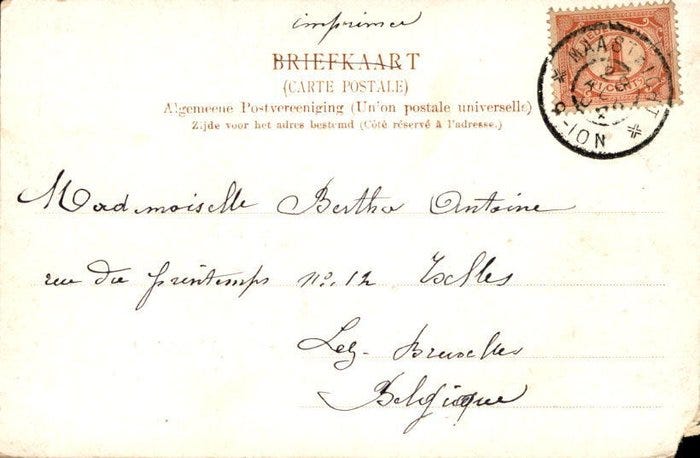 imprimee
BRIEFKAART
(CARTE POSTALE)
Algemeene Postvereeniging (Un'on postale universelle)
Zijde voor het adres bestemd (Côté réservé à l'adresse.)
MAASTRICHT
Mademoiselle Bertha Antoine
rue du printemps no. 12 Ixelles
Lez-Bruxelles
Belgique